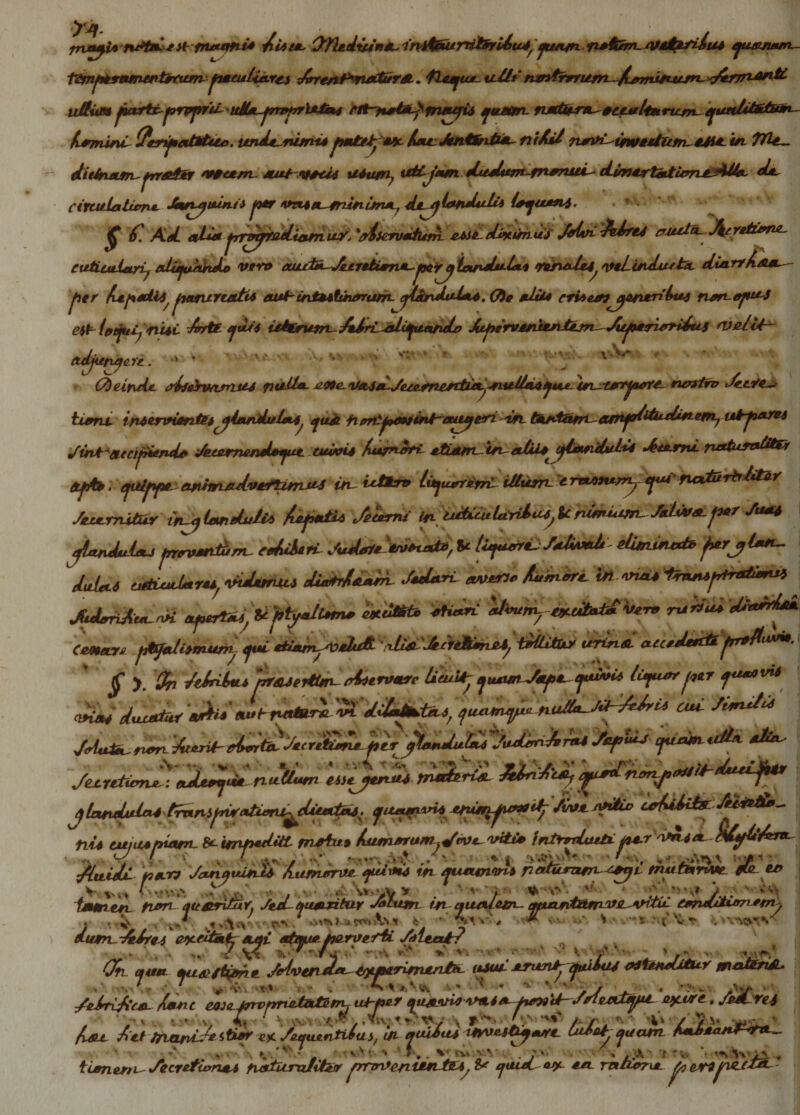 74.
magis notae est magnis hisce Medicinae instauritoribus, quam notum veteribus quaenam
temperamentorum peculiares forent natura. Neque ulli nostrorum hominum firmanti
ullius parti proprii ulla proprietas est nota, magis quam natura occultarum qualitatum
homini Peripatetico. unde nimis patet, ex hac sententia nihil novi invectum esse in Me-
dicinam praeter vocem aut vocis usum, uti jam dudum monui dissertatione illa de
circulatione sanguinis per vasa minima, de glandulis loquens.
§ 6. Ad alia progrediamur. observatum esse diximus solvi febres aucta secretione
cuticulari, aliquando vero aucta secretione per glandulas renales, vel inducta diarrhaea
per hepatis, pancreatis aut intestinorum glandulas. De aliis criseon generibus non opus
est loqui, nisi forte quis iterum febri aliquando supervenientem superioribus velit
adjungere.
Deinde observamus nulla esse vasa secernentia, nullasque in corpore nostro secre-
tioni inservientes glandulas, quae non possint augeri in tantam amplitudinem, ut pares
sint accipiendo secernendoque cuivis humori etiam in aliis glandulis secerni naturaliter
apto: quippe animadvertimus in ictero liquorem illum crassum, qui naturaliter
secernitur in glandulis hepatis secerni in cuticularibus, & nimium salivae per suas
glandulas proventum cohiberi sudore evocato, & liquore salivali eliminato per glan-
dulas cuticulares, videmus diarrhaeam sedari averso humore in vias transpirationis
sudorifica vi apertas, & ptyalismo excitato etiam alvum, excitata vero rursus diarrhaea
cessare ptyalismum, qui etiam, veluti aliae secretiones, tollitur urinae accedente profluvio.
§ 7. In febribus praesertim observare licuit, quum saepe quivis liquor per quasvis
vias ducatur artis aut natura vi dilatatas, quamque nulla sit febris cui similis
soluta non fuerit oborta secretione per glandulas sudoriferas saepius quam ulla alia
secretione: adeoque nullum esse genus materiae febrificae, quod non possit duci per
glandulas transpirationi dicatas. quamvis enim possit, sive vitio cohibitae secretio-
nis cujuspiam & impediti motus humorum, sive vitio introducti per vasa chylifera
fluidi pars sanguinis humorve quivis in quamvis naturam cogi mutarive de eo
tamen non quaeritur, sed quaeritur solum in qualem quantamve vitii conditionem,
dum febres excitat, agi atque perverti soleat?
In qua quaestione solvenda experimenta usui erunt, quibus ostenditur materiae
febrificae hanc esse proprietatem, ut per quaevis vasa possit soleatque exire. sed res
haec fiet manifestior ex sequentibus, in quibus investigare lubet, quam habeant ra-
tionem secretiones naturaliter provenientes, & quid ex ea ratione perspecta